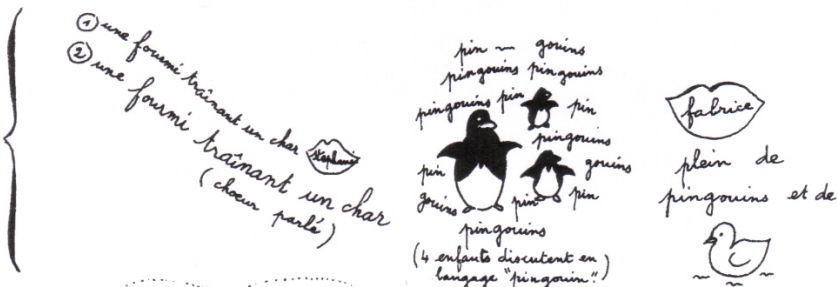 ① une fourmi traînant un char
stéphanie
② une fourmi traînant un char
(choeur parlé)
pin ~ gouins
pingouins pingouins
pingouins pin pin
pingouins
pin gouins
gouins pin pin
pingouins
(4 enfants discutent en
langage "pingouin".)
fabrice
plein de
pingouins et de